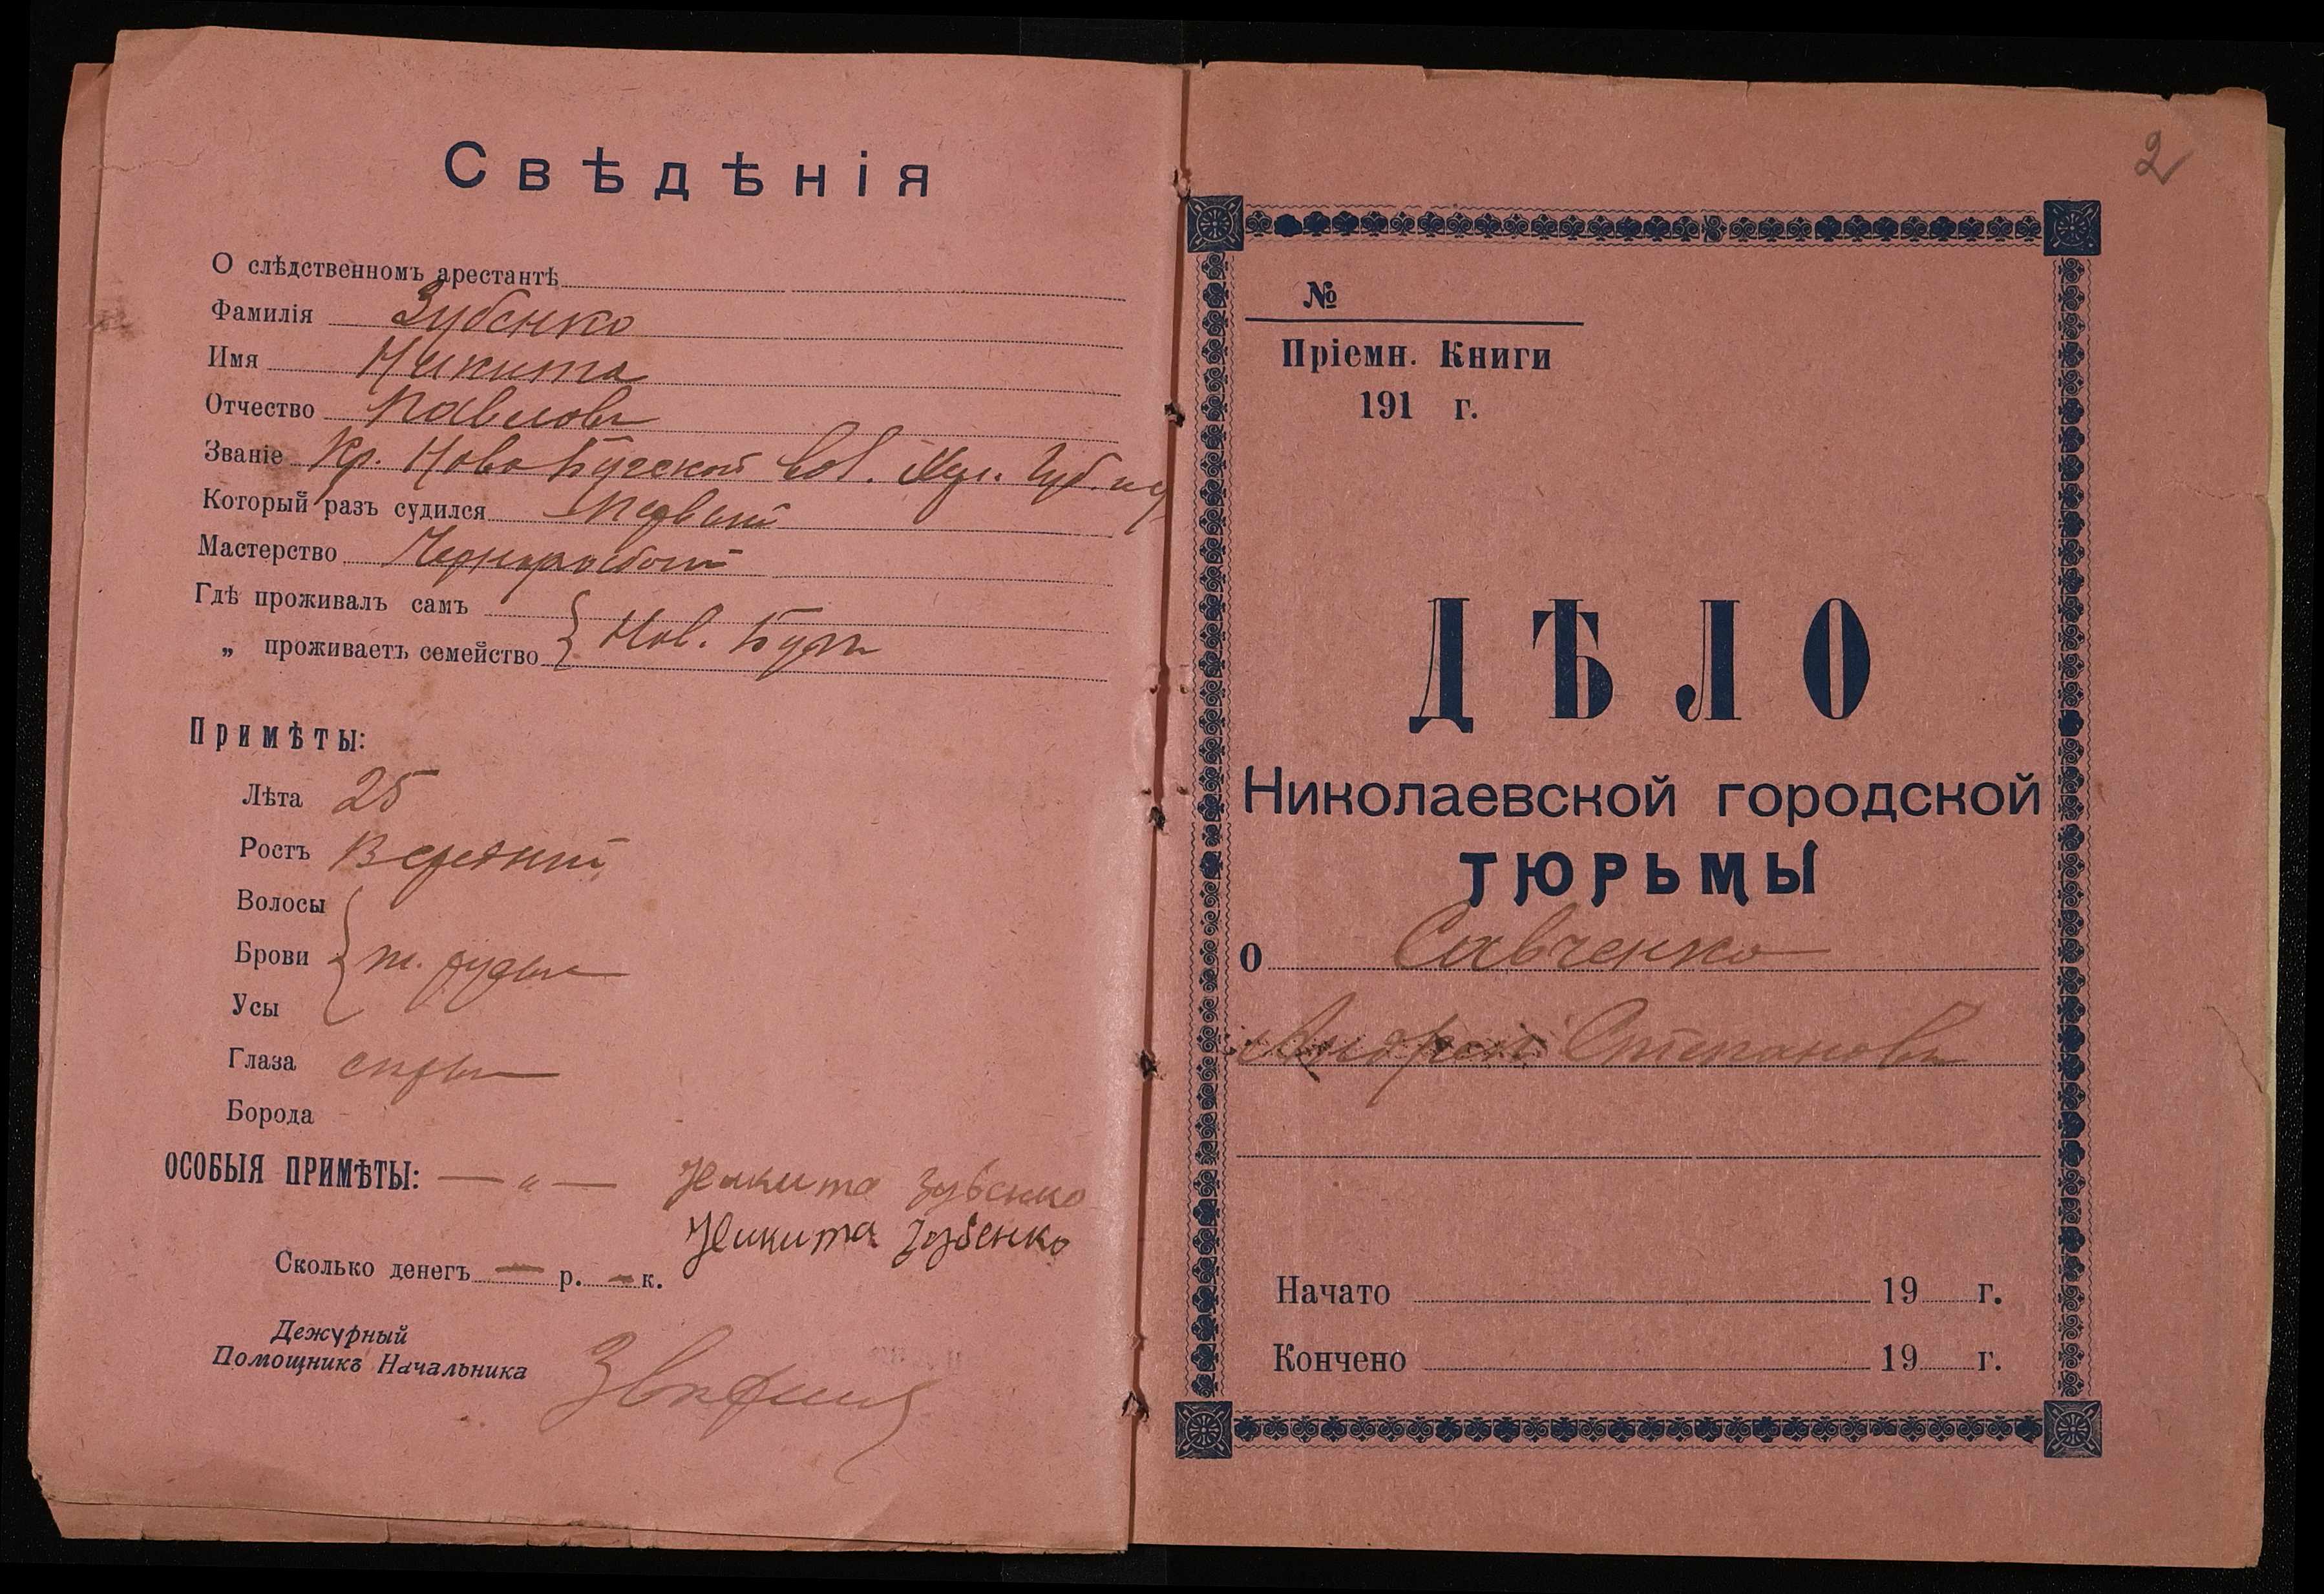 Свѣдѣнія
О слѣдственномъ арестантѣ
Фамилія Зубенко
Имя Никита
Отчество Павловъ
Званіе Кр. Ново Бугской вол. Хер. Губ. и у
Который разъ судился Первый
Мастерство Чернорабочій
Гдѣ проживалъ самъ
„ проживаетъ семейство Нов. Бугъ
Примѣты:
Лѣта 25
Ростъ Средній
Волосы
Брови т. русые
Усы
Глаза сѣрые
Борода
ОСОБЫЯ ПРИМѢТЫ: — „ — Никита Зубенко
Никита Зубенко
Сколько денегъ — р. — к.
Дежурный
Помощникъ Начальника
2
№
Пріемн. Книги
191 г.
ДѢЛО
Николаевской городской
ТЮРЬМЫ
О Савченко
Андрей Степановъ
Начато 19 г.
Кончено 19 г.